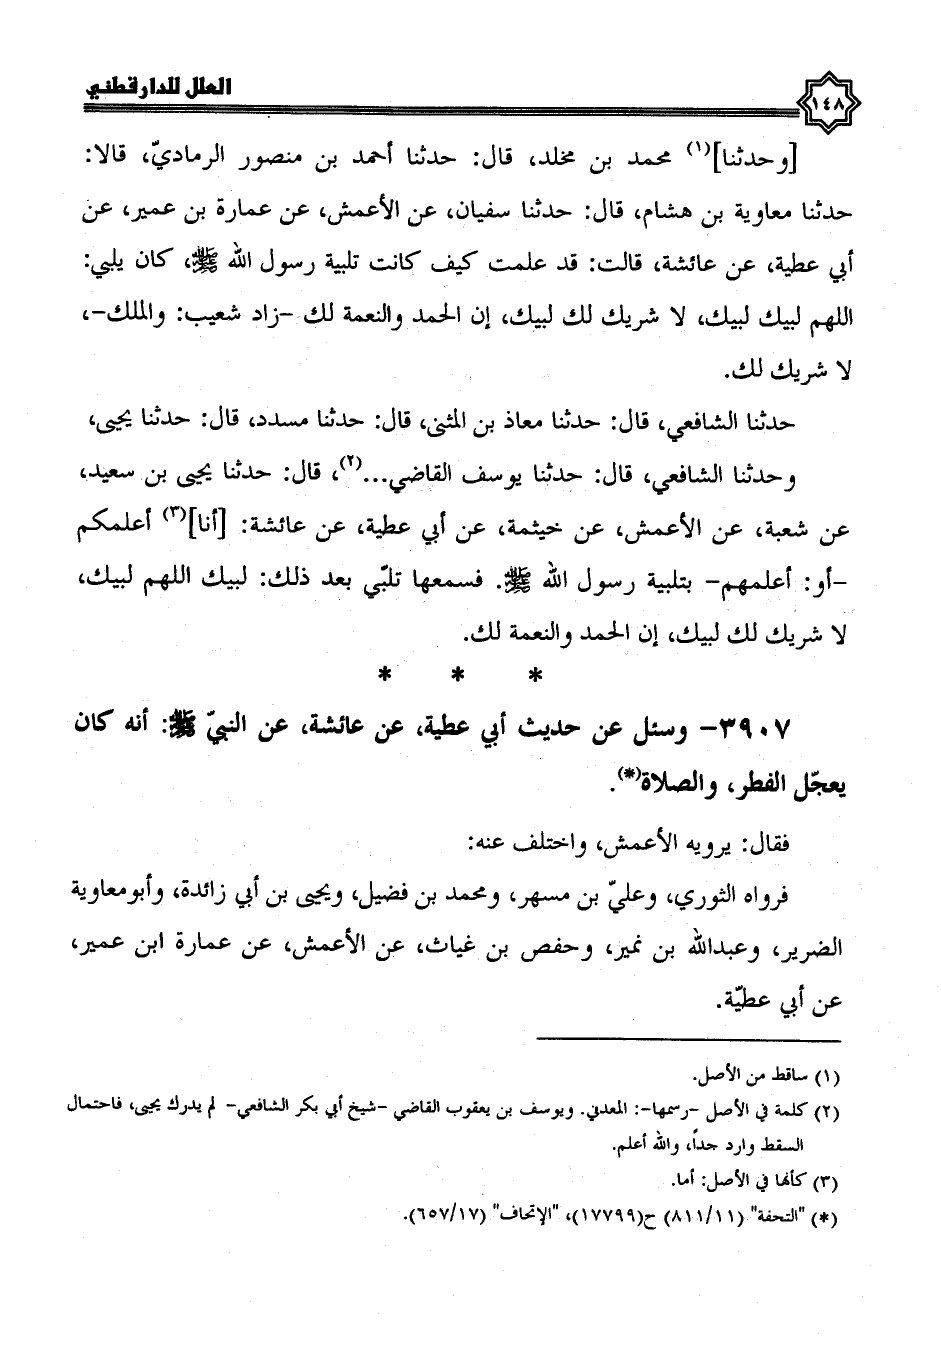 العلل للدارقطني
١٤٨
[وحدثنا](١) محمد بن مخلد، قال: حدثنا أحمد بن منصور الرماديّ، قالا:
حدثنا معاوية بن هشام، قال: حدثنا سفيان، عن الأعمش، عن عمارة بن عمير، عن
أبي عطية، عن عائشة، قالت: قد علمت كيف كانت تلبية رسول الله ﷺ، كان يلبي:
اللهم لبيك لبيك، لا شريك لك لبيك، إن الحمد والنعمة لك -زاد شعيب: والملك-،
لا شريك لك.
حدثنا الشافعي، قال: حدثنا معاذ بن المثنى، قال: حدثنا مسدد، قال: حدثنا يحيى،
وحدثنا الشافعي، قال: حدثنا يوسف القاضي...(٢)، قال: حدثنا يحيى بن سعيد،
عن شعبة، عن الأعمش، عن خيثمة، عن أبي عطية، عن عائشة: [أنا](٣) أعلمكم
-أو: أعلمهم- بتلبية رسول الله ﷺ. فسمعها تلبّي بعد ذلك: لبيك اللهم لبيك،
لا شريك لك لبيك، إن الحمد والنعمة لك.
* * *
٣٩٠٧- وسئل عن حديث أبي عطية، عن عائشة، عن النبيّ ﷺ: أنه كان
يعجّل الفطر، والصلاة(*).
فقال: يرويه الأعمش، واختلف عنه:
فرواه الثوري، وعليّ بن مسهر، ومحمد بن فضيل، ويحيى بن أبي زائدة، وأبومعاوية
الضرير، وعبدالله بن نمير، وحفص بن غياث، عن الأعمش، عن عمارة ابن عمير،
عن أبي عطيّة.
(١) ساقط من الأصل.
(٢) كلمة في الأصل -رسمها-: المعدني. ويوسف بن يعقوب القاضي -شيخ أبي بكر الشافعي- لم يدرك يحيى، فاحتمال
السقط وارد جداً، والله أعلم.
(٣) كأنها في الأصل: أما.
(*) "التحفة" (٨١١/١١) ح(١٧٧٩٩)، "الإتحاف" (٦٥٧/١٧).